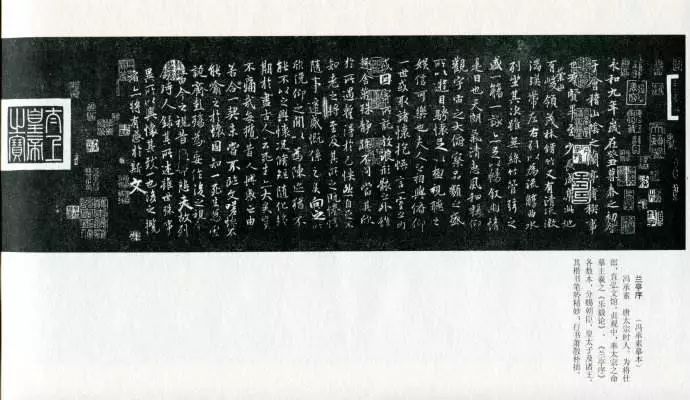 永和九年歲在癸丑暮春之初會
于會稽山陰之蘭亭脩稧事
也羣賢畢至少長咸集此地
有崇山峻領茂林脩竹又有清流激
湍暎帶左右引以為流觴曲水
列坐其次雖無絲竹管弦之
盛一觴一詠亦足以暢敘幽情
是日也天朗氣清惠風和暢仰
觀宇宙之大俯察品類之盛
所以遊目騁懷足以極視聽之
娛信可樂也夫人之相與俯仰
一世或取諸懷抱悟言一室之內
或因寄所託放浪形骸之外雖
趣舍萬殊靜躁不同當其欣
於所遇蹔得於己怏然自足不
知老之將至及其所之既惓情
隨事遷感慨係之矣向之所
欣俛仰之間以為陳迹猶不
能不以之興懷況脩短隨化終
期於盡古人云死生亦大矣豈
不痛哉每攬昔人興感之由
若合一契未嘗不臨文嗟悼不
能喻之於懷固知一死生為虛
誕齊彭殤為妄作後之視今
亦由今之視昔悲夫故列
敘時人錄其所述雖世殊事
異所以興懷其致一也後之攬
者亦將有感於斯文
太上
皇帝
之寶
兰亭序 （冯承素摹本）
冯承素 唐太宗时人，为将仕
郎，直弘文馆。贞观中，奉太宗之命
摹王羲之《乐毅论》、《兰亭序》
各数本，分赐朝臣、皇太子及诸王，
其楷书笔势精妙，行书萧散朴拙。